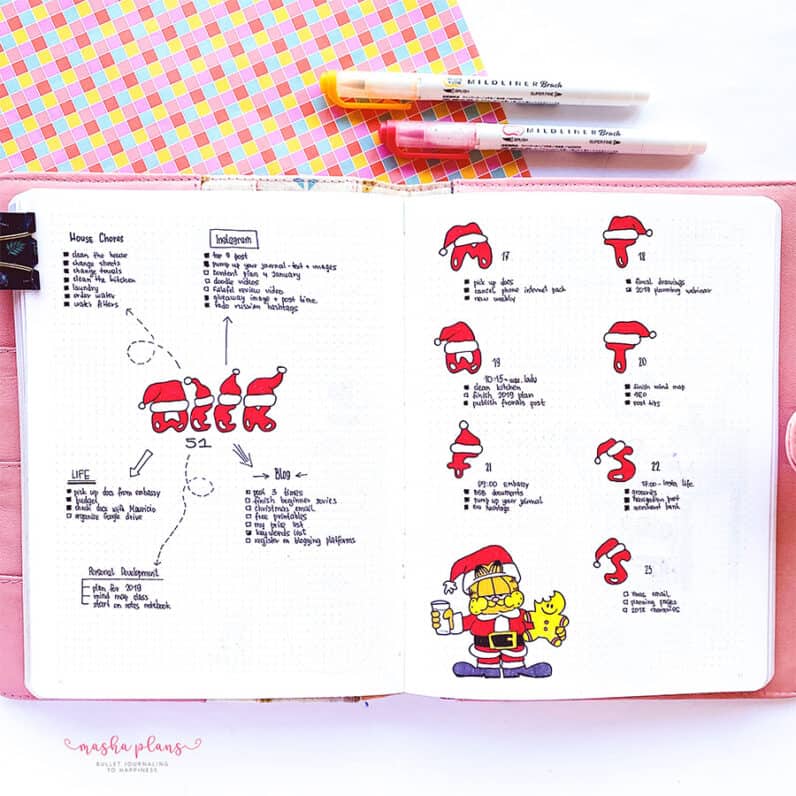 MILDLINER Brush
BRUSH
SUPER FINE
MILDLINER Brush
BRUSH
SUPER FINE
House Chores
clean the house
change sheets
change towels
clean the kitchen
laundry
order water
water filters
Instagram
top 9 post
pump up your journal - text + images
content plan 4 January
doodle videos
review video
giveaway image + post time
hashtags
WEEK
51
LIFE
pick up docs from embassy
budget
check docs with Mauricio
organize Google drive
Blog
post 3 times
finish beginner series
christmas email
free printables
my price list
keywords list
register on blogging platforms
Personal Development
plan for 2019
mind map class
start on notes notebook
M 17
pick up docs
cancel phone internet pack
new weekly
T 18
final drawings
2019 planning webinar
W 19
10:15 -
clean kitchen
finish 2019 plan
publish post
T 20
finish mind map
SEO
post bits
F 21
09:00 embassy
documents
pump up your journal
S 22
17:00 - insta life
groceries
S 23
xmas email
planning pages
2018 memories
masha plans
BULLET JOURNALING
TO HAPPINESS